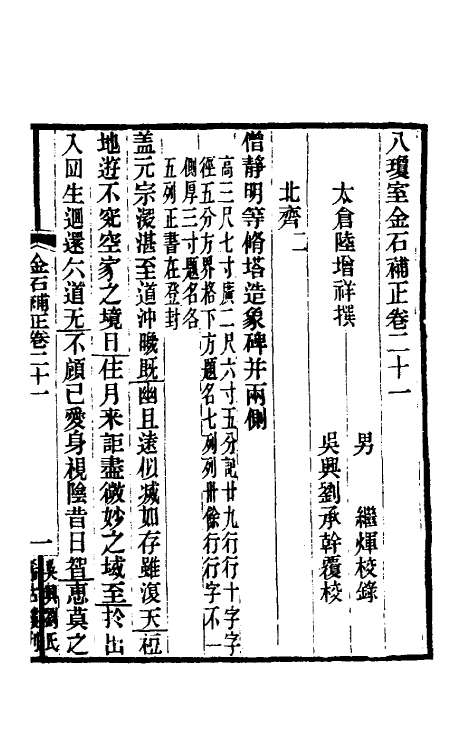 八瓊室金石補正卷二十一
太倉陸增祥撰
男　繼煇校錄
吳興劉承幹覆校
北齊二
僧靜明等脩塔造象碑并兩側
高三尺七寸廣二尺六寸五分記廿九行行十字字
徑五分方界格下方題名七列列卅餘行行字不一
側厚三寸題名各
五列正書在登封
盖元宗濅湛至道沖曠既幽且遠似減如存雖復天桓
地遊不究空家之境日住月来詎盡微妙之域至扵出
入回生迴還六道无不顔已愛身視陰昔日智惠莫之
金石補正卷二十一
一
吳興劉氏